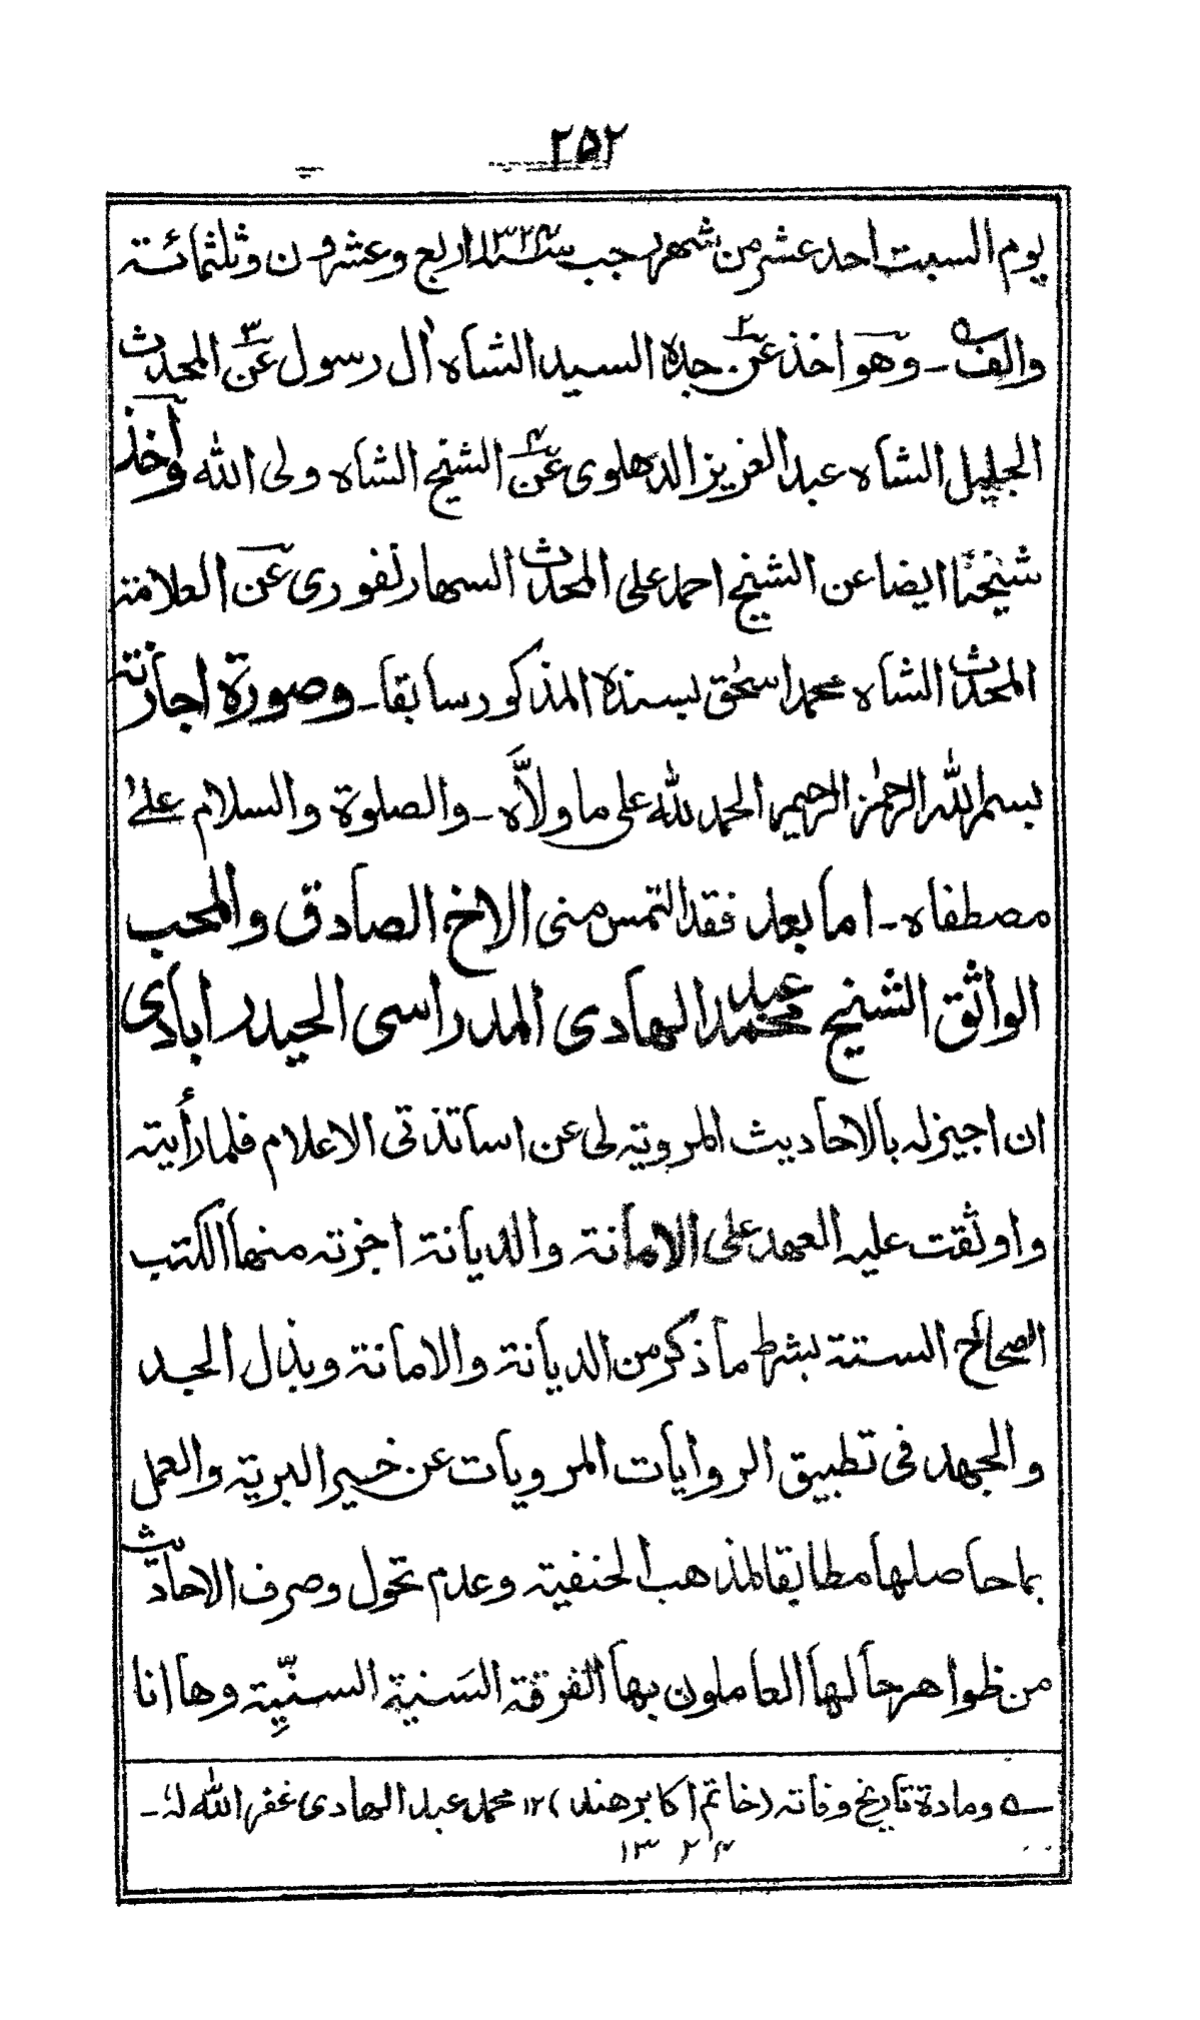 ٢٥٢
يوم السبت احد عشر من شهر رجب سنة ١٣٢٤ اربع وعشرون وثلثمائة
والف ـ وهو اخذ عن جده السيد الشاه اٰل رسول عن المحدث
الجليل الشاه عبد العزيز الدهلوى عن الشيخ الشاه ولى الله واخذ
شيخنا ايضا عن الشيخ احمد على المحدث السهارنفورى عن العلامة
المحدث الشاه محمد اسحٰق بسنده المذكور سابقا ـ وصورة اجازته
بسم الله الرحمٰن الرحيم الحمد لله على ما ولاَّه ـ والصلوة والسلام علىٰ
مصطفاه ـ اما بعد فقد التمس منى الاخ الصادق والمحب
الواثق الشيخ محمد عبد الهادى المدراسى الحيدرابادى
ان اجيز له بالاحاديث المروية لى عن اساتذتى الاعلام فلما رأيته
واوثقت عليه العهد على الامانة والديانة اجزته منها الكتب
الصحاح الستة بشرط ما ذكر من الديانة والامانة وبذل الجد
والجهد فى تطبيق الروايات المرويات عن خير البرية والعمل
بما حاصلها مطابقا لمذهب الحنفية وعدم تحول وصرف الاحاديث
من ظواهر حالها العاملون بها الفرقة السَنية السنِّيِة وها انا
ه ومادة تاريخ وفاته (خاتم اكابر هند) ١٢ محمد عبد الهادى غفر الله له ـ
١٣٢٤